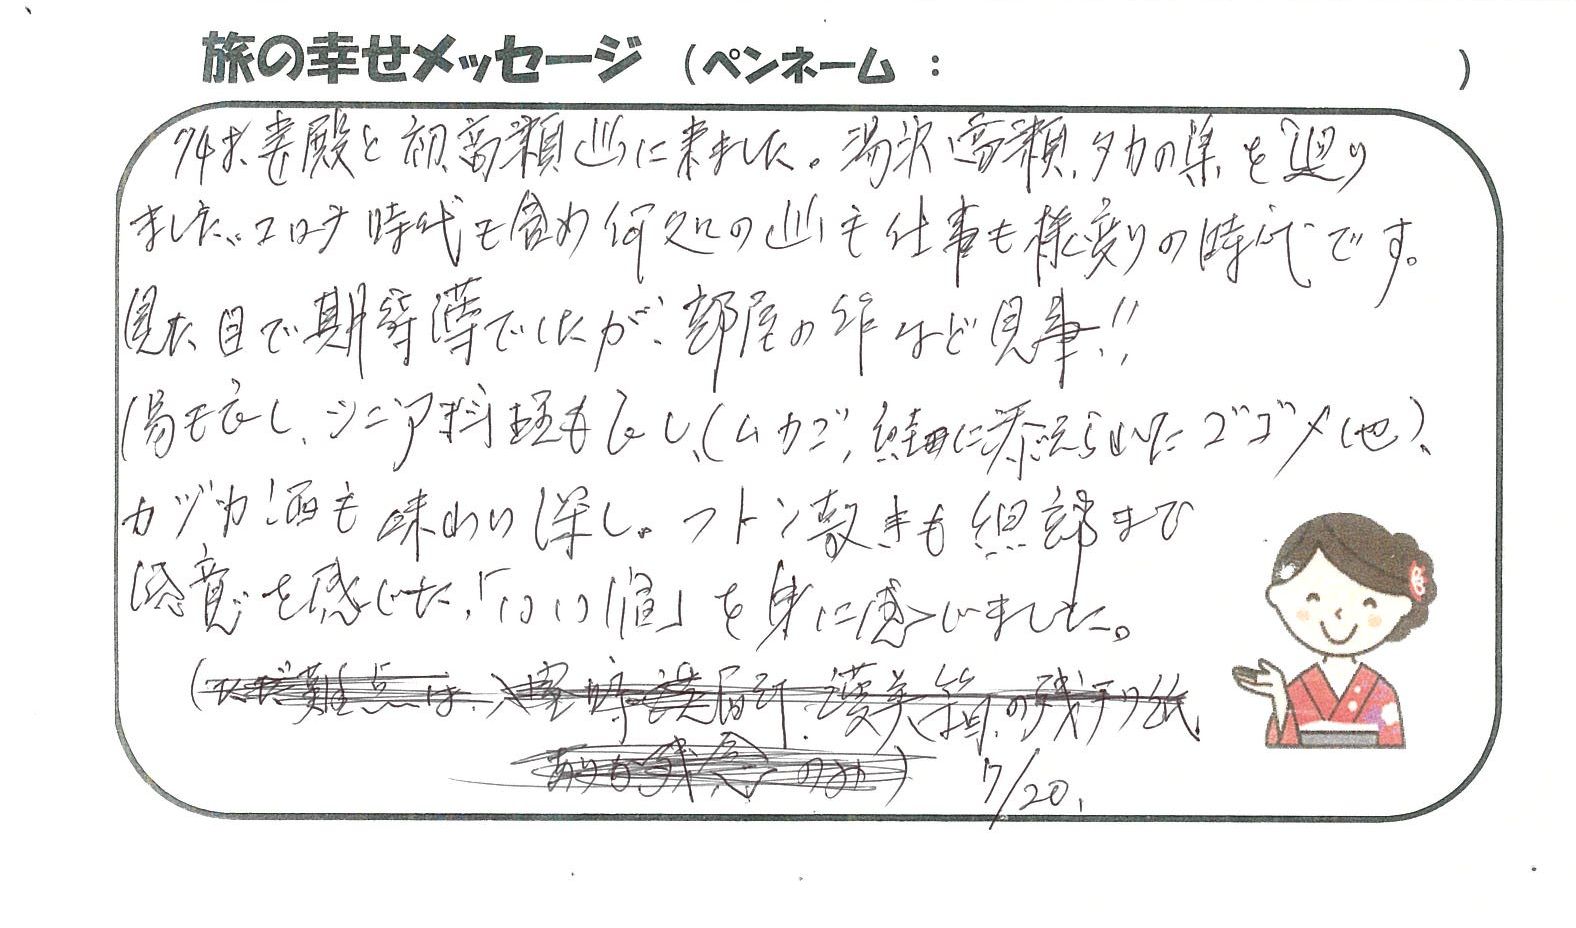 旅の幸せメッセージ (ペンネーム : )
74才、妻殿と初、高瀬巡に来ました。湯沢、高瀬、タカの巣、を廻り
ました、コロナ時代も含め何処の 巡も仕事も様変りの時代です。
見た目で期待薄でしたが、部屋の作など見事!!
湯も良し、シニア料理も良し、(ムカゴ、に添えられたゴゴメ他)、
カジカ酒も味わい深し。フトン敷きも まで
を感じた、「いい宿」を身に感じました。
(ただ難点は、
残念のみ) 7/20、